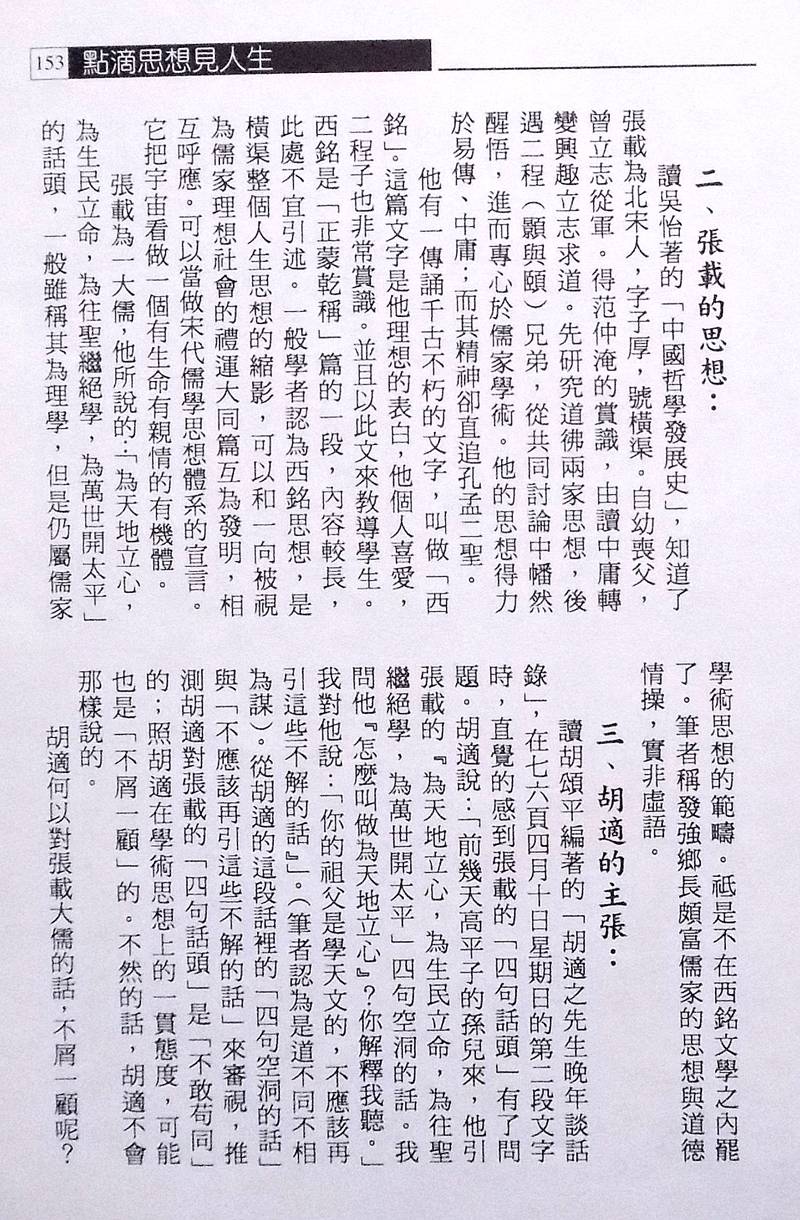 153 點滴思想見人生
二、張載的思想：
讀吳怡著的「中國哲學發展史」，知道了
張載為北宋人，字子厚，號橫渠。自幼喪父，
曾立志從軍。得范仲淹的賞識，由讀中庸轉
變興趣立志求道。先研究道彿兩家思想，後
遇二程（顥與頤）兄弟，從共同討論中幡然
醒悟，進而專心於儒家學術。他的思想得力
於易傳、中庸；而其精神卻直追孔孟二聖。
他有一傳誦千古不朽的文字，叫做「西
銘」。這篇文字是他理想的表白，他個人喜愛，
二程子也非常賞識。並且以此文來教導學生。
西銘是「正蒙乾稱」篇的一段，內容較長，
此處不宜引述。一般學者認為西銘思想，是
橫渠整個人生思想的縮影，可以和一向被視
為儒家理想社會的禮運大同篇互為發明，相
互呼應。可以當做宋代儒學思想體系的宣言。
它把宇宙看做一個有生命有親情的有機體。
張載為一大儒，他所說的：「為天地立心，
為生民立命，為往聖繼絕學，為萬世開太平」
的話頭，一般雖稱其為理學，但是仍屬儒家
學術思想的範疇。祗是不在西銘文學之內罷
了。筆者稱發強鄉長頗富儒家的思想與道德
情操，實非虛語。
三、胡適的主張：
讀胡頌平編著的「胡適之先生晚年談話
錄」，在七六頁四月十日星期日的第二段文字
時，直覺的感到張載的「四句話頭」有了問
題。胡適說：「前幾天高平子的孫兒來，他引
張載的『為天地立心，為生民立命，為往聖
繼絕學，為萬世開太平」四句空洞的話。我
問他『怎麼叫做為天地立心』？你解釋我聽。」
我對他說：「你的祖父是學天文的，不應該再
引這些不解的話』」。（筆者認為是道不同不相
為謀）。從胡適的這段話裡的「四句空洞的話」
與「不應該再引這些不解的話」來審視，推
測胡適對張載的「四句話頭」是「不敢苟同」
的；照胡適在學術思想上的一貫態度，可能
也是「不屑一顧」的。不然的話，胡適不會
那樣說的。
胡適何以對張載大儒的話，不屑一顧呢？